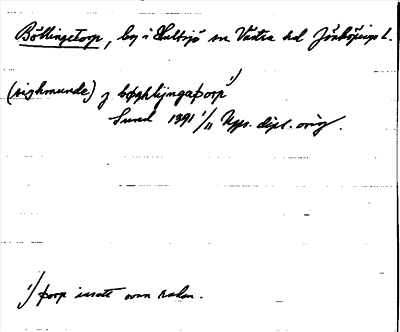 Böllingetorp, by i Hultsjö sn Västra hd Jönköpings l.
(sighmunde) j bøghlyngaþorp 1)
Lund 1391 1/11 Upps. dipl. orig.
1) þorp insatt ovan raden.